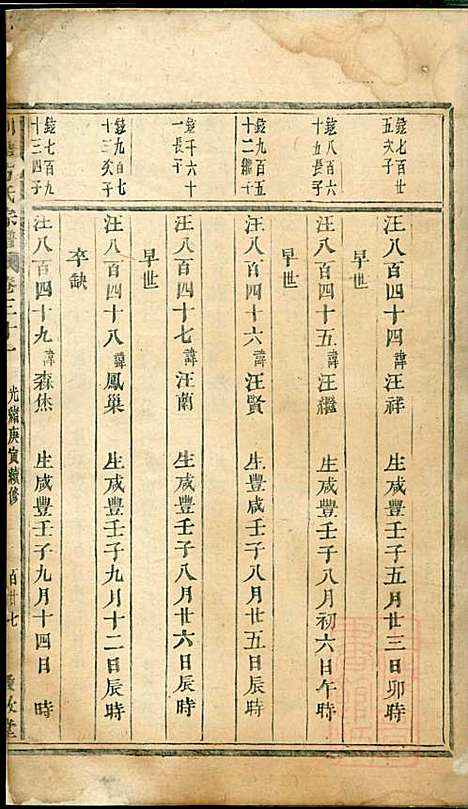 鏡七百廿
五次子
汪八百四十四諱汪祥 生咸豐壬子五月廿三日卯時
早世
鏡八百六
十五長子
汪八百四十五諱汪繼 生咸豐壬子八月初六日午時
早世
鏡九百五
十二繼子
汪八百四十六諱汪賢 生豐咸壬子八月廿五日辰時
鏡千六十
一長子
汪八百四十七諱汪蘭 生咸豐壬子八月廿六日辰時
早世
鏡九百七
十三次子
汪八百四十八諱鳳巢 生咸豐壬子九月十二日辰時
卒缺
鏡七百九
十三四子
汪八百四十九諱森焦 生咸豐壬子九月十四日 時
方氏宗譜 卷三十一 光緒庚寅續修 百廿七 敦堂